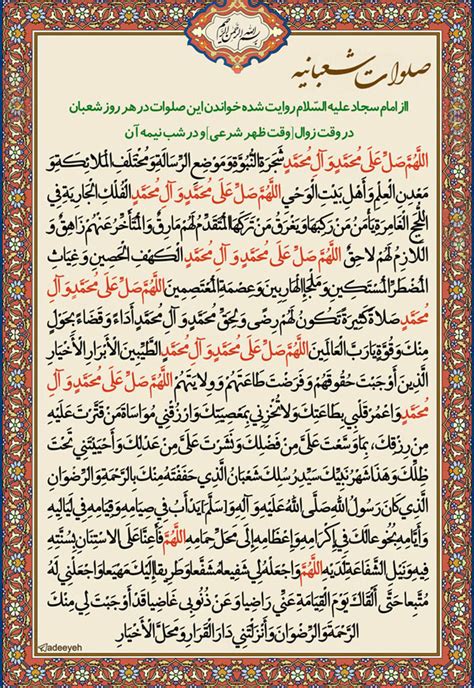 بسم الله الرحمن الرحیم
صلوات شعبانیه
ااز امام سجاد علیه السّلام روایت شده خواندن این صلوات در هر روز شعبان
در وقت زوال [وقت ظهر شرعی] و در شب نیمه آن
اللَّهُمَّ صَلِّ عَلَى مُحَمَّدٍ وَ آلِ مُحَمَّدٍ شَجَرَةِ النُّبُوَّةِ وَ مَوْضِعِ الرِّسَالَةِ وَ مُخْتَلَفِ الْمَلائِكَةِ وَ
مَعْدِنِ الْعِلْمِ وَ أَهْلِ بَيْتِ الْوَحْيِ اللَّهُمَّ صَلِّ عَلَى مُحَمَّدٍ وَ آلِ مُحَمَّدٍ الْفُلْكِ الْجَارِيَةِ فِي
اللُّجَجِ الْغَامِرَةِ يَأْمَنُ مَنْ رَكِبَهَا وَ يَغْرَقُ مَنْ تَرَكَهَا الْمُتَقَدِّمُ لَهُمْ مَارِقٌ وَ الْمُتَأَخِّرُ عَنْهُمْ زَاهِقٌ وَ
اللازِمُ لَهُمْ لاحِقٌ اللَّهُمَّ صَلِّ عَلَى مُحَمَّدٍ وَ آلِ مُحَمَّدٍ الْكَهْفِ الْحَصِينِ وَ غِيَاثِ
الْمُضْطَرِّ الْمُسْتَكِينِ وَ مَلْجَإِ الْهَارِبِينَ وَ عِصْمَةِ الْمُعْتَصِمِينَ اللَّهُمَّ صَلِّ عَلَى مُحَمَّدٍ وَ آلِ
مُحَمَّدٍ صَلاةً كَثِيرَةً تَكُونُ لَهُمْ رِضًى وَ لِحَقِّ مُحَمَّدٍ وَ آلِ مُحَمَّدٍ أَدَاءً وَ قَضَاءً بِحَوْلٍ
مِنْكَ وَ قُوَّةٍ يَا رَبَّ الْعَالَمِينَ اللَّهُمَّ صَلِّ عَلَى مُحَمَّدٍ وَ آلِ مُحَمَّدٍ الطَّيِّبِينَ الْأَبْرَارِ الْأَخْيَارِ
الَّذِينَ أَوْجَبْتَ حُقُوقَهُمْ وَ فَرَضْتَ طَاعَتَهُمْ وَ وِلايَتَهُمْ اللَّهُمَّ صَلِّ عَلَى مُحَمَّدٍ وَ آلِ
مُحَمَّدٍ وَ اعْمُرْ قَلْبِي بِطَاعَتِكَ وَ لا تُخْزِنِي بِمَعْصِيَتِكَ وَ ارْزُقْنِي مُوَاسَاةَ مَنْ قَتَّرْتَ عَلَيْهِ
مِنْ رِزْقِكَ، بِمَا وَسَّعْتَ عَلَيَّ مِنْ فَضْلِكَ وَ نَشَرْتَ عَلَيَّ مِنْ عَدْلِكَ وَ أَحْيَيْتَنِي تَحْتَ
ظِلِّكَ وَ هَذَا شَهْرُ نَبِيِّكَ سَيِّدِ رُسُلِكَ شَعْبَانُ الَّذِي حَفَفْتَهُ مِنْكَ بِالرَّحْمَةِ وَ الرِّضْوَانِ
الَّذِي كَانَ رَسُولُ اللَّهِ صَلَّى اللَّهُ عَلَيْهِ وَ آلِهِ وَ [سَلَّمَ] يَدْأَبُ فِي صِيَامِهِ وَ قِيَامِهِ فِي لَيَالِيهِ
وَ أَيَّامِهِ بُخُوعا لَكَ فِي إِكْرَامِهِ وَ إِعْظَامِهِ إِلَى مَحَلِّ حِمَامِهِ اللَّهُمَّ فَأَعِنَّا عَلَى الاسْتِنَانِ بِسُنَّتِهِ
فِيهِ وَ نَيْلِ الشَّفَاعَةِ لَدَيْهِ اللَّهُمَّ وَ اجْعَلْهُ لِي شَفِيعا مُشَفَّعا وَ طَرِيقا إِلَيْكَ مَهْيَعا وَ اجْعَلْنِي لَهُ
مُتَّبِعا حَتَّى أَلْقَاكَ يَوْمَ الْقِيَامَةِ عَنِّي رَاضِيا وَ عَنْ ذُنُوبِي غَاضِيا قَدْ أَوْجَبْتَ لِي مِنْكَ
الرَّحْمَةَ وَ الرِّضْوَانَ وَ أَنْزَلْتَنِي دَارَ الْقَرَارِ وَ مَحَلَّ الْأَخْيَارِ
adeeyeh